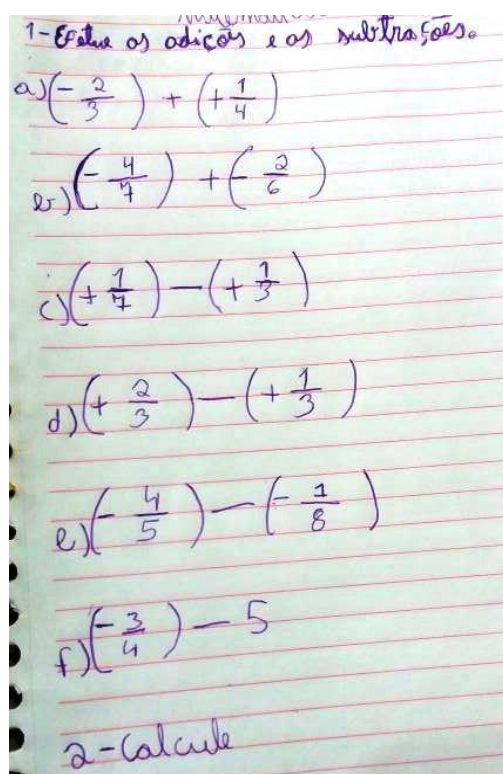 1-Efetue os adições e as subtrações.
a) (-2/3) + (+1/4)
b) (-4/7) + (-2/6)
c) (+1/7) - (+1/3)
d) (+2/3) - (+1/3)
e) (-4/5) - (-1/8)
f) (-3/4) - 5
2-Calcule